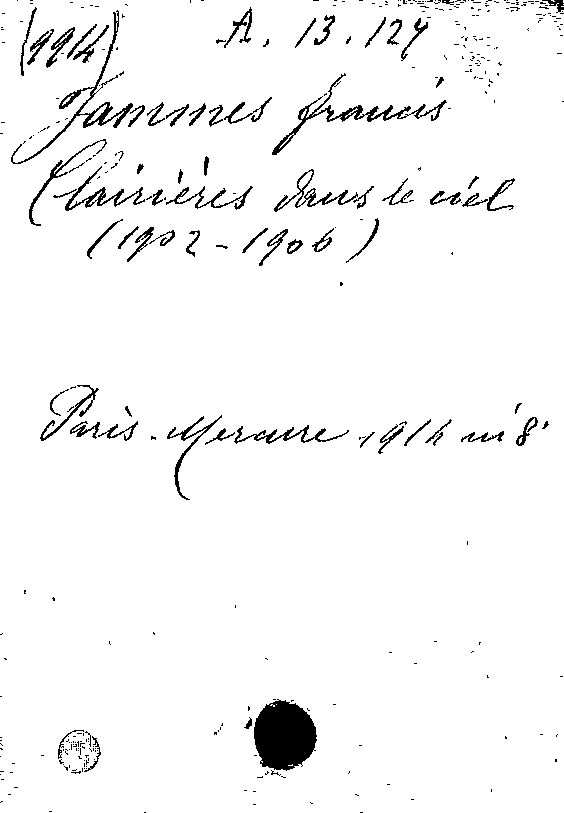 (1914) A. 13.124
Jammes Francis
Clairières dans le ciel
(1902-1906)
Paris. Mercure 1914 in 8°